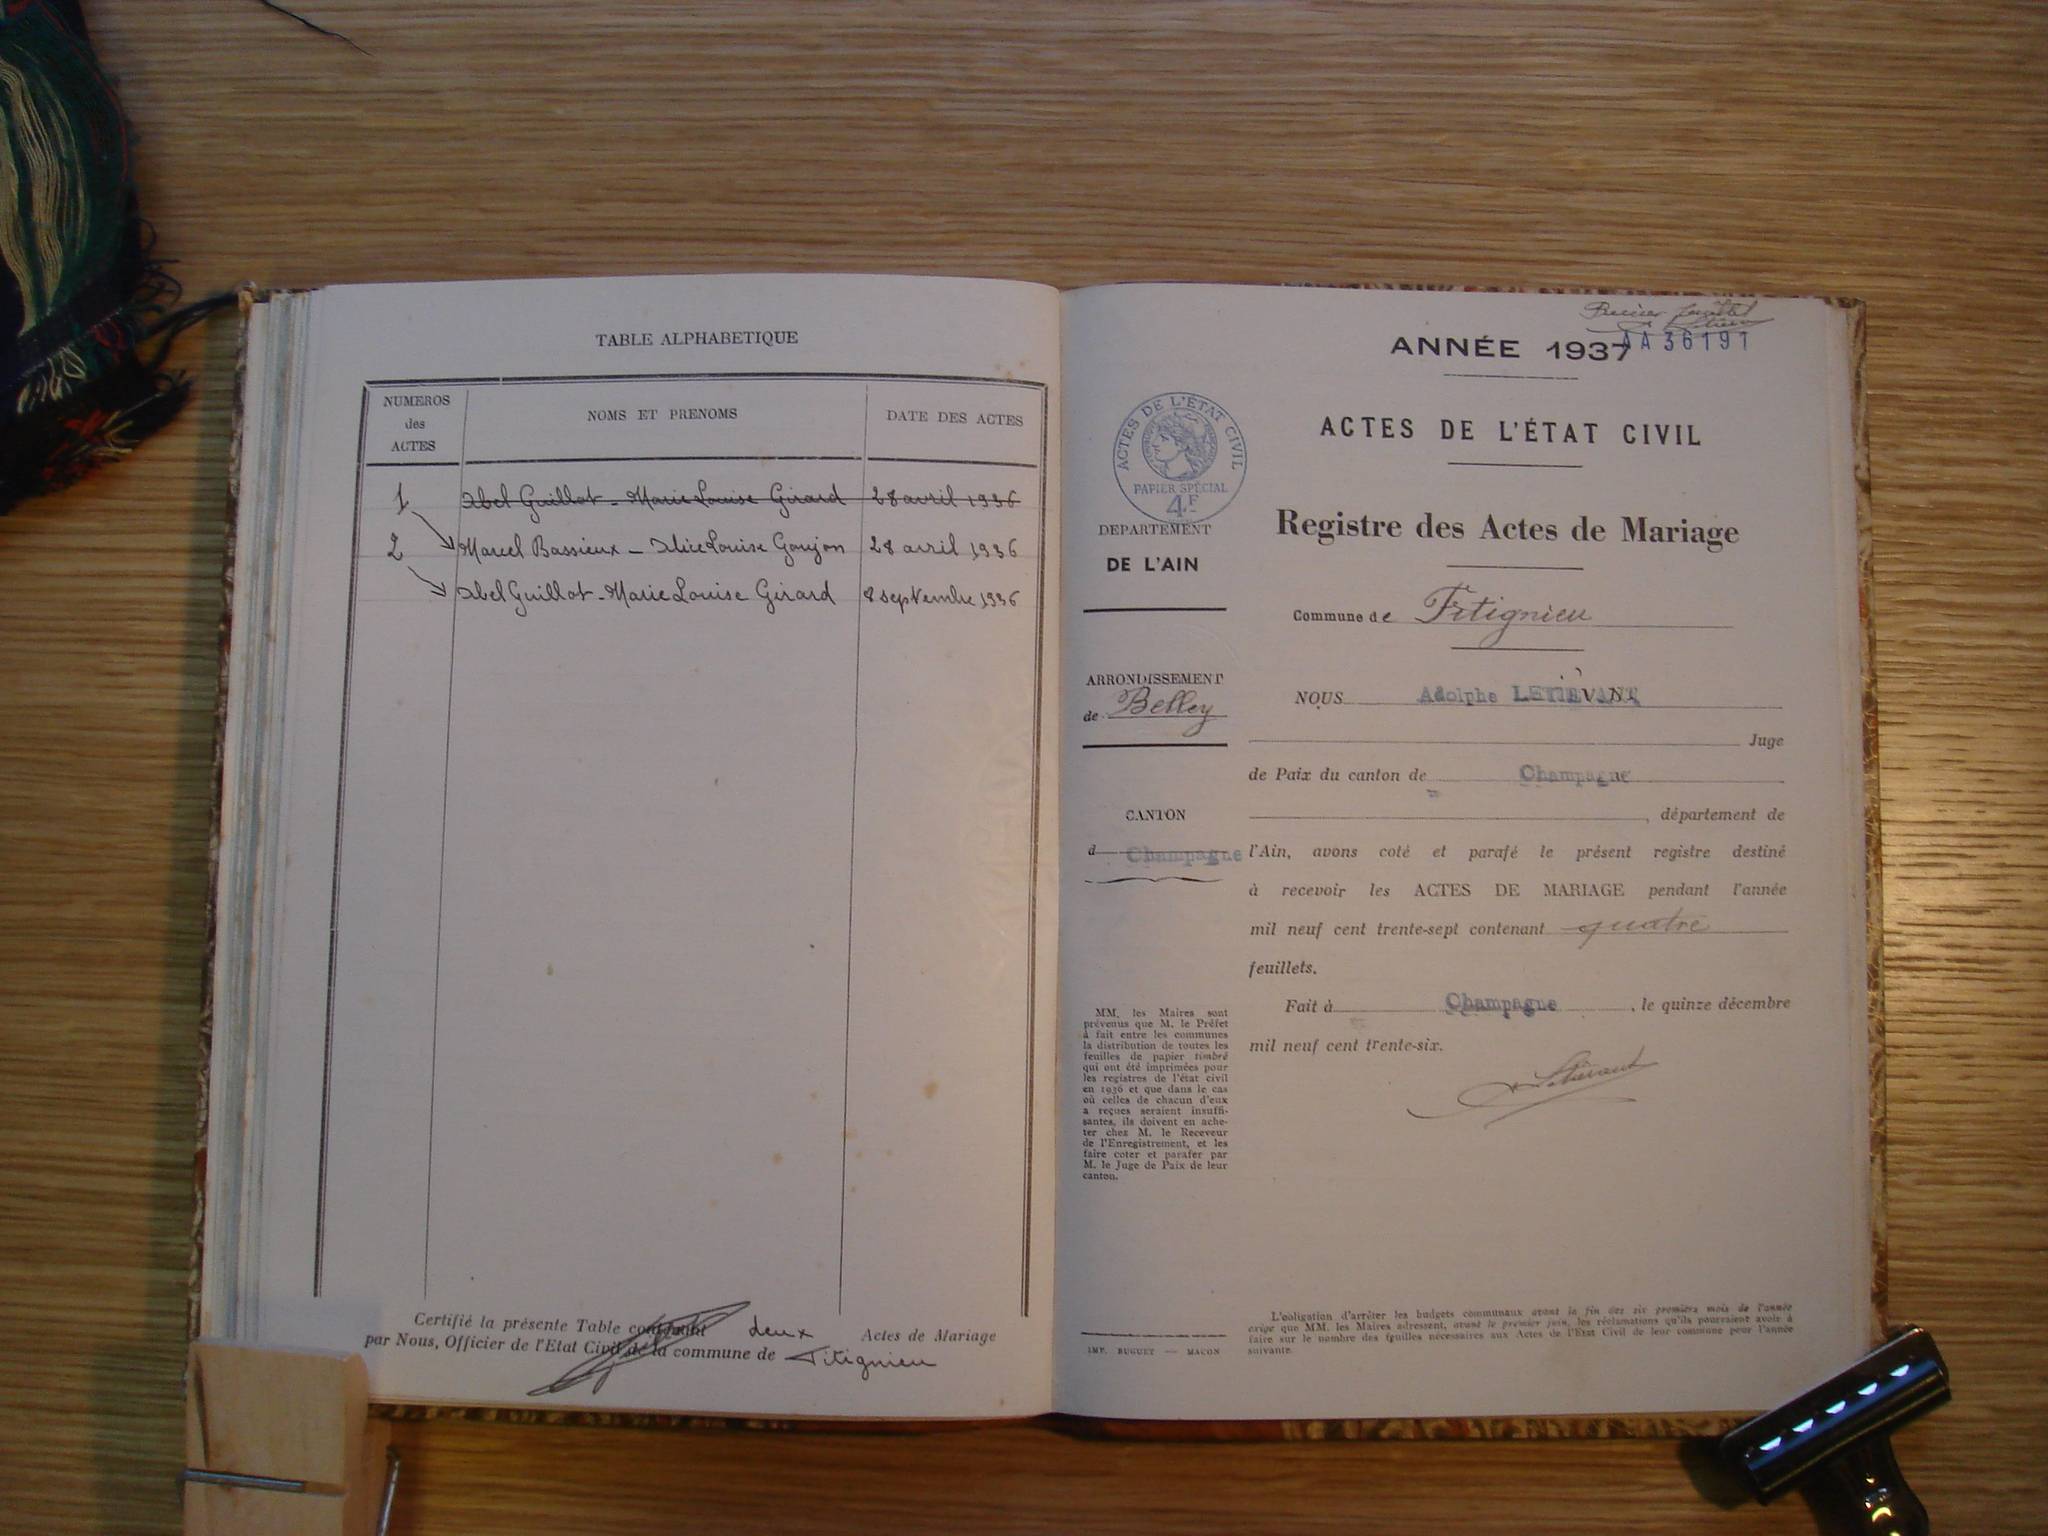 TABLE ALPHABETIQUE
NUMEROS
des
ACTES
NOMS ET PRENOMS
DATE DES ACTES
1 Abel Guillot - Marie Louise Girard 28 avril 1936
2 Marcel Bassieux - Alice Louise Goujon 28 avril 1936
Abel Guillot - Marie Louise Girard 8 septembre 1936
Certifié la présente Table contenant deux Actes de Mariage
par Nous, Officier de l'Etat Civil de la commune de Fitignieu
Premier feuillet
AA 36191
ANNÉE 1937
ACTES DE L'ÉTAT CIVIL
PAPIER SPÉCIAL
4F
ACTES DE L'ÉTAT CIVIL
Registre des Actes de Mariage
DEPARTEMENT
DE L'AIN
Commune de Fitignieu
ARRONDISSEMENT
de Belley
NOUS Adolphe LETIÈVANT
Juge
de Paix du canton de Champagne
CANTON
d Champagne
, département de
l'Ain, avons coté et parafé le présent registre destiné
à recevoir les ACTES DE MARIAGE pendant l'année
mil neuf cent trente-sept contenant quatre
feuillets.
Fait à Champagne, le quinze décembre
mil neuf cent trente-six.
Letièvant
MM. les Maires sont
prévenus que M. le Préfet
à fait entre les communes
la distribution de toutes les
feuilles de papier timbré
qui ont été imprimées pour
les registres de l'état civil
en 1936 et que dans le cas
où celles de chacun d'eux
a reçues seraient insuffi-
santes, ils doivent en ache-
ter chez M. le Receveur
de l'Enregistrement, et les
faire coter et parafer par
M. le Juge de Paix de leur
canton.
IMP. BUGUET — MACON
L'obligation d'arrêter les budgets communaux avant la fin des six premiers mois de l'année
exige que MM. les Maires adressent, avant le premier juin, les réclamations qu'ils pourraient avoir à
faire sur le nombre des feuilles nécessaires aux Actes de l'Etat Civil de leur commune pour l'année
suivante.